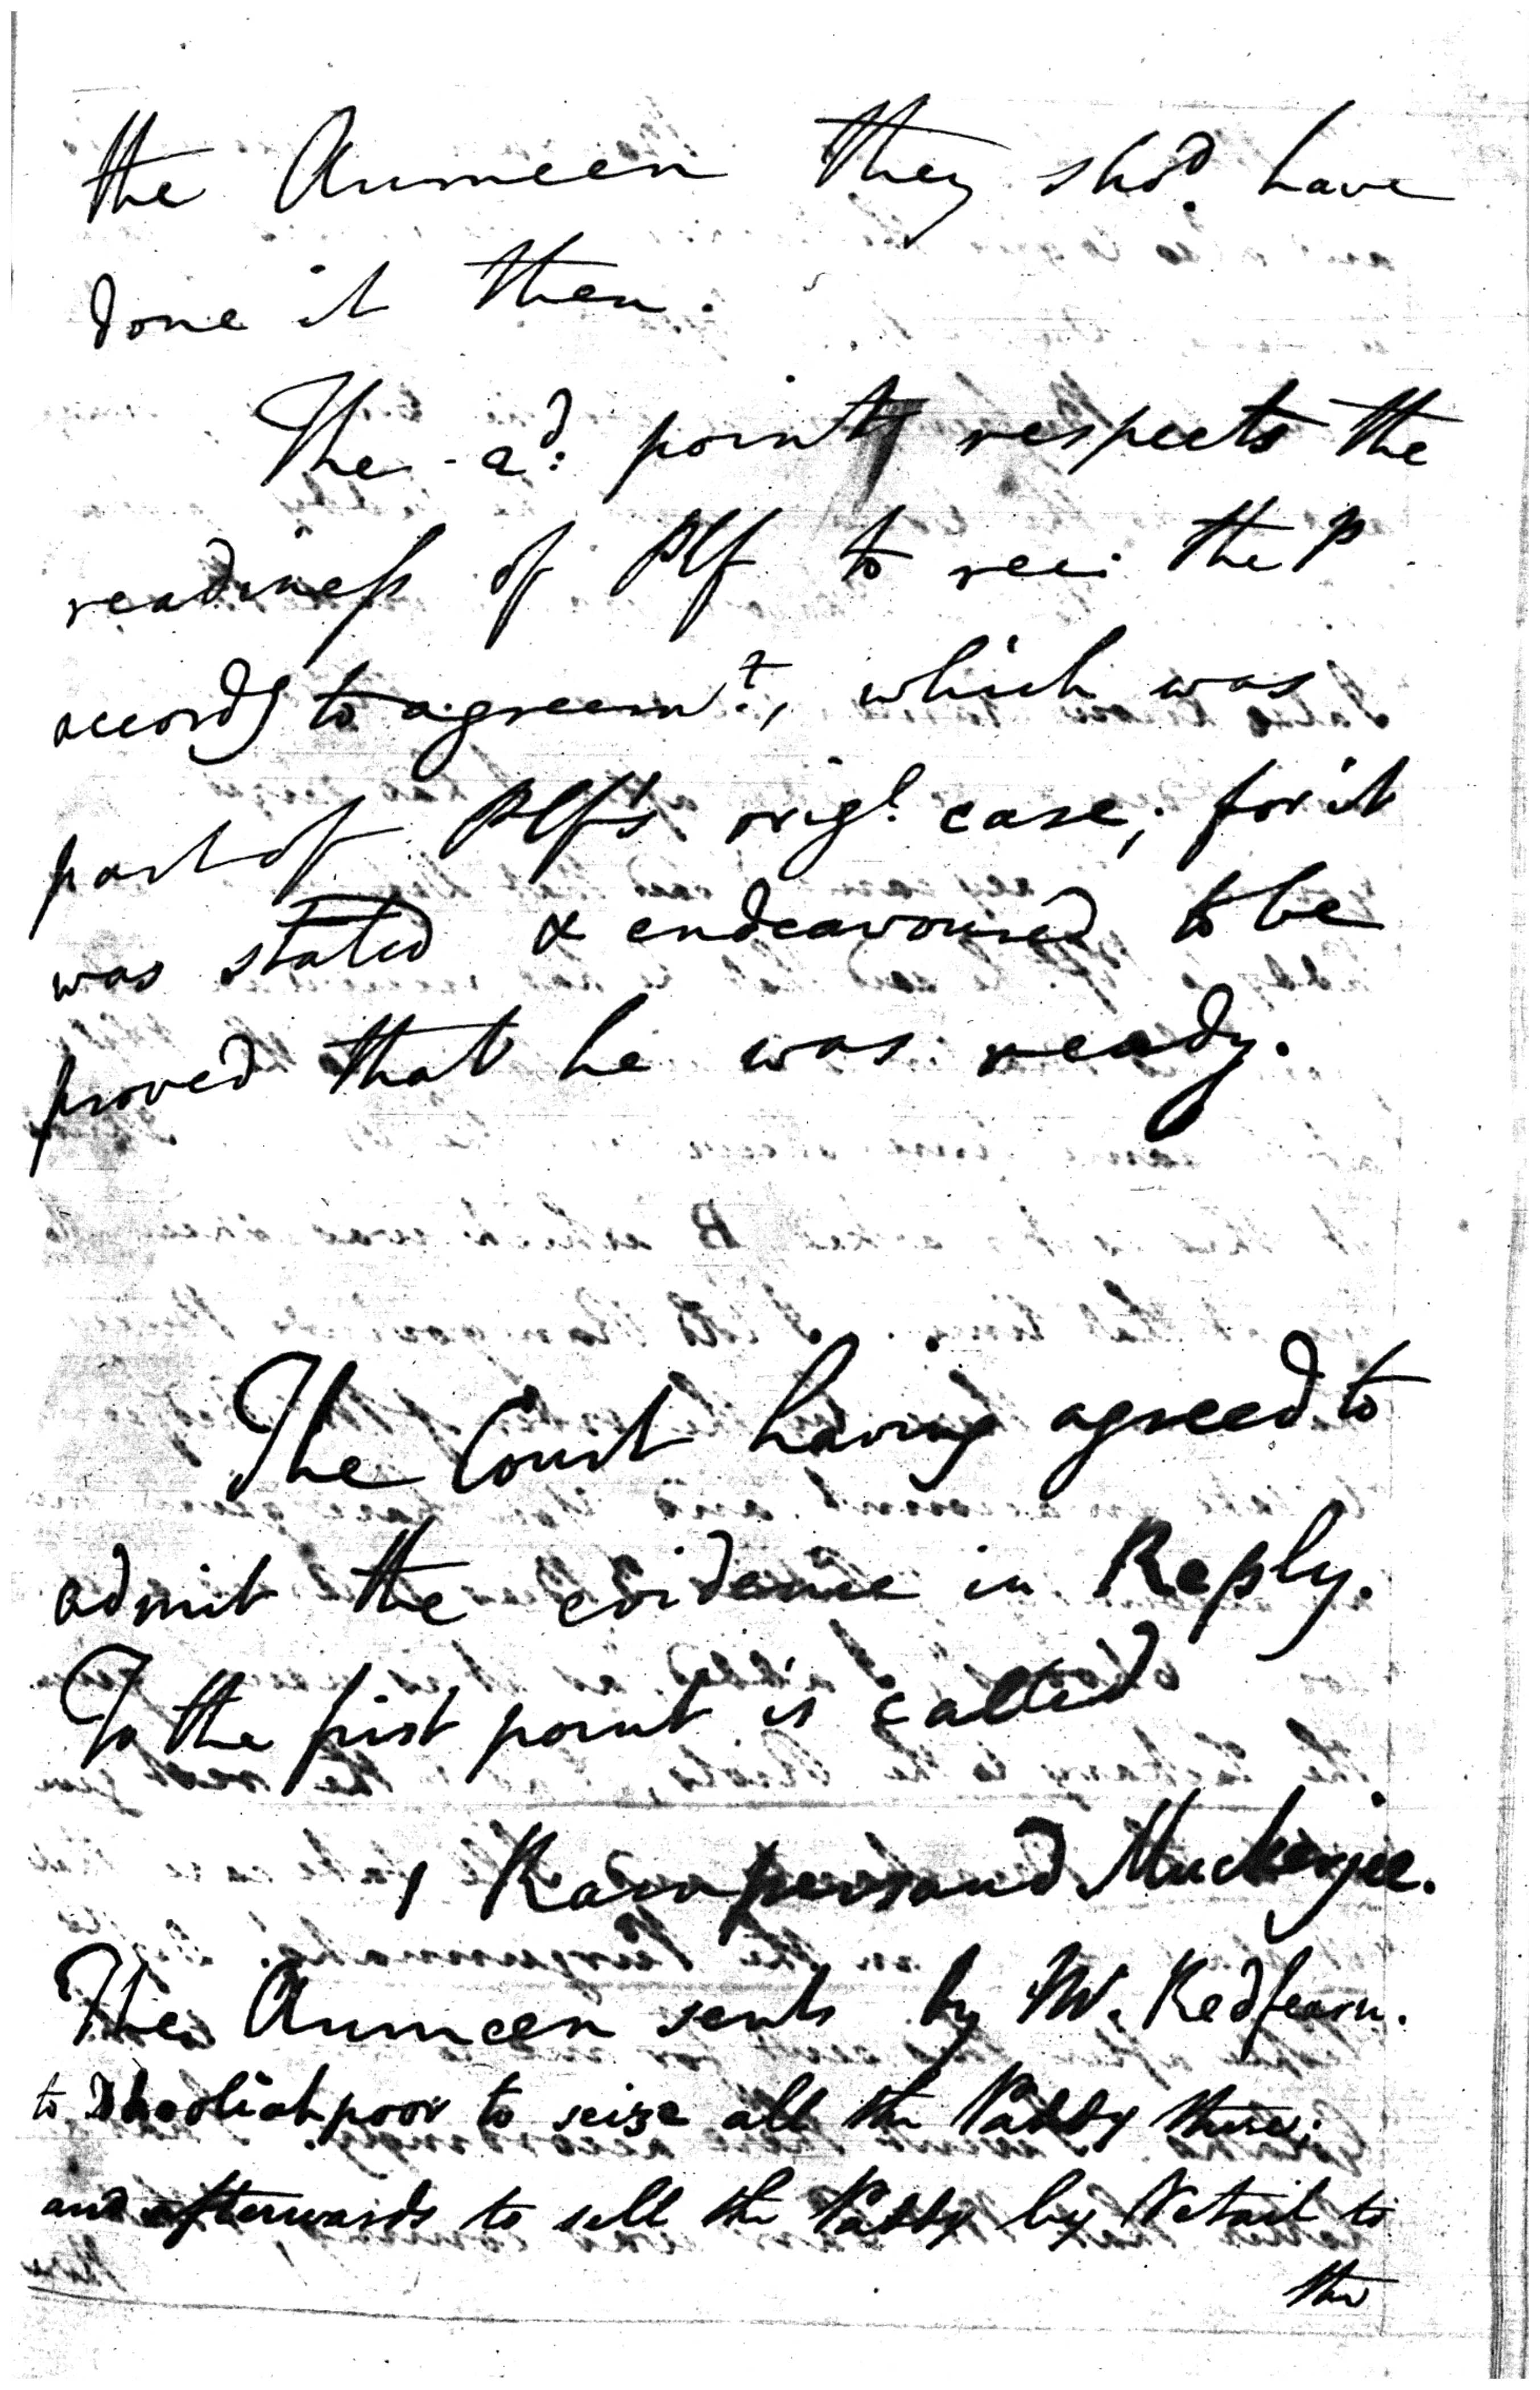 the Aumeen they shod. have
done it then.
The 2d: point respects the
readiness of Plf to reci: the P
accordg to agreemt., which was
part of Plf's origl. case; for it
was stated & endeavoured to be
proved that he was ready.
The Court having agreed to
admit the evidence in Reply.
To the first point is called
1 Rampersaud Muckerjee.
The Aumeen sent by Mr. Redfearn.
to to seize all the Paddy there;
and afterwards to sell the Paddy by Retail to
the